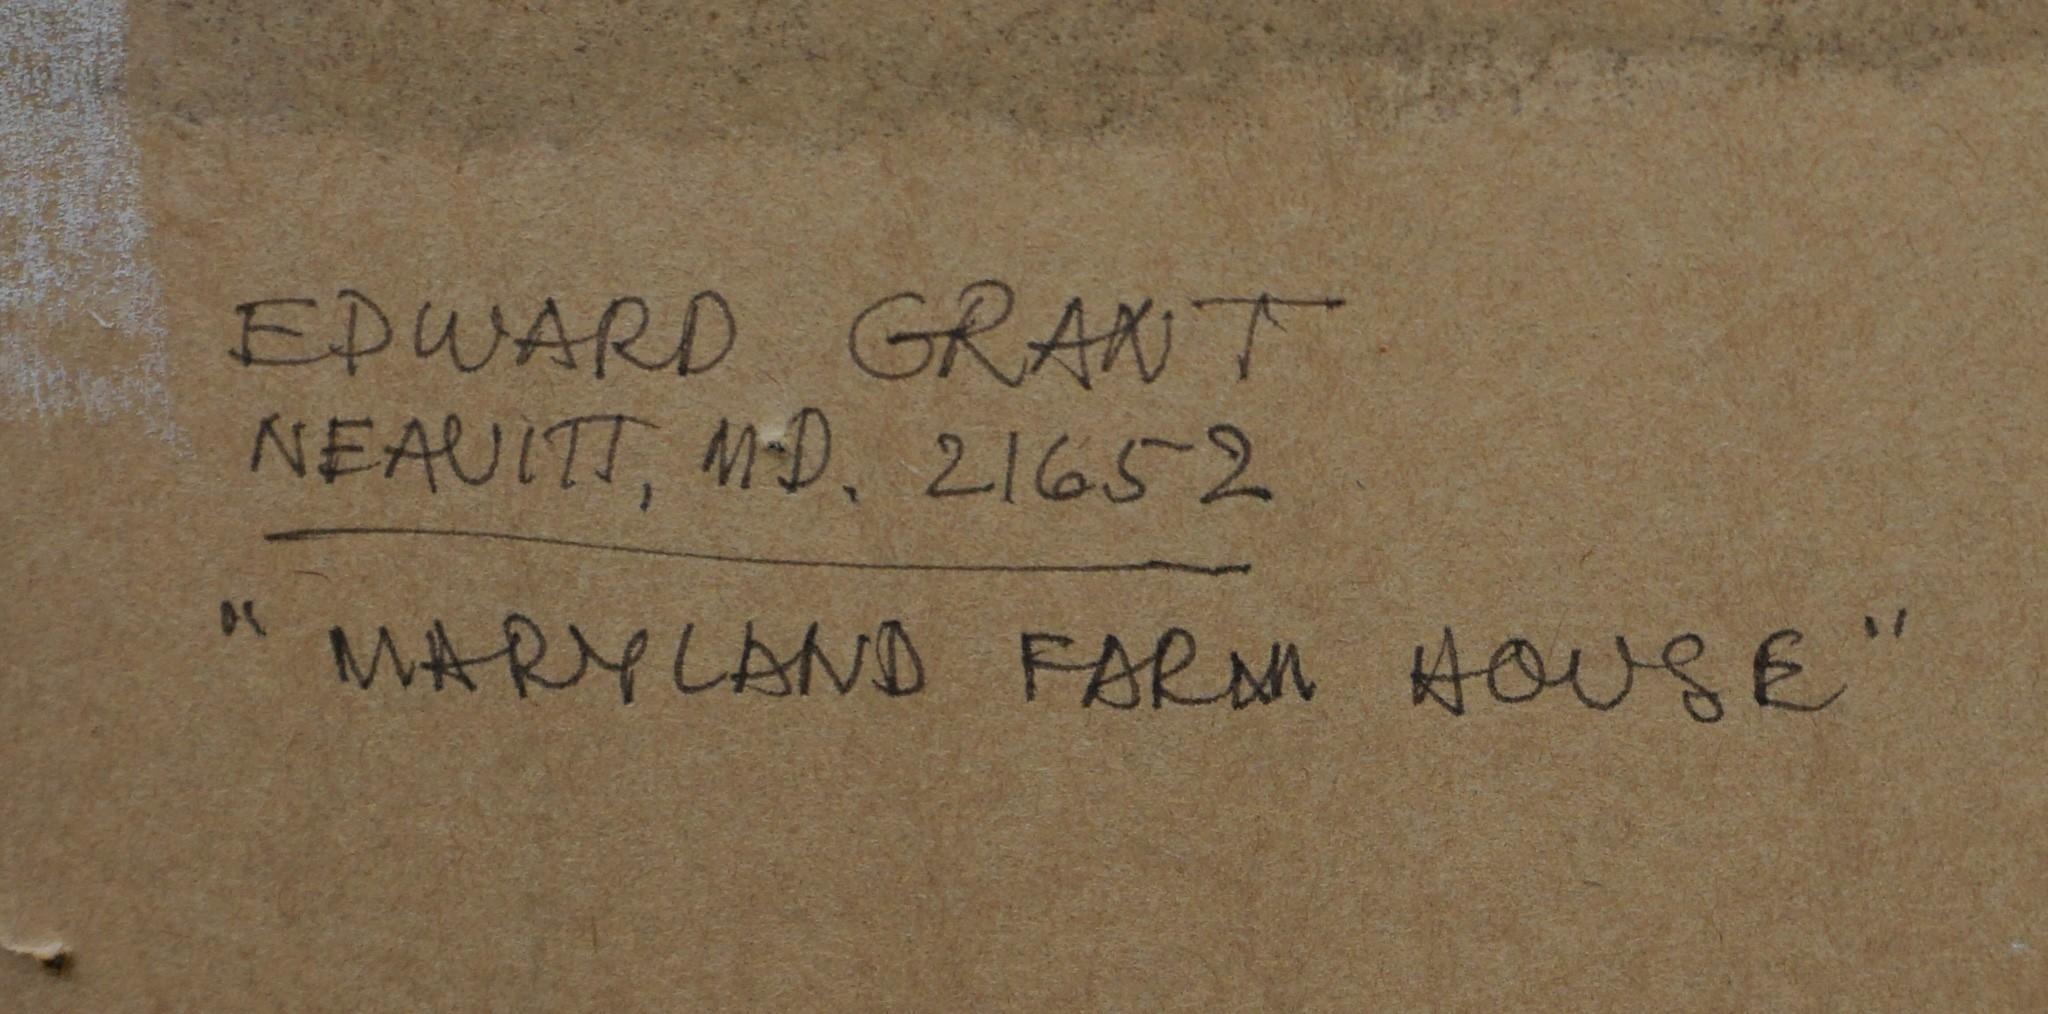 EDWARD GRANT
NEAVITT, MD. 21652
" MARYLAND FARM HOUSE "